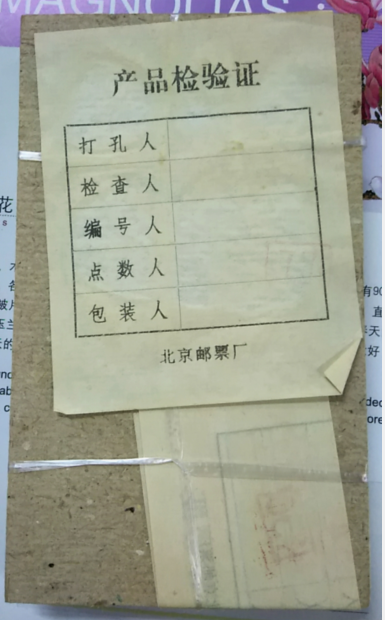 MAGNOLIAS
产品检验证
打孔人
检查人
编号人
点数人
包装人
北京邮票厂
花